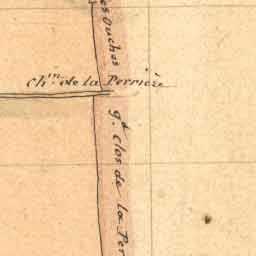 es Ouches
ch.in de la Perrière
g.d clos de la Per